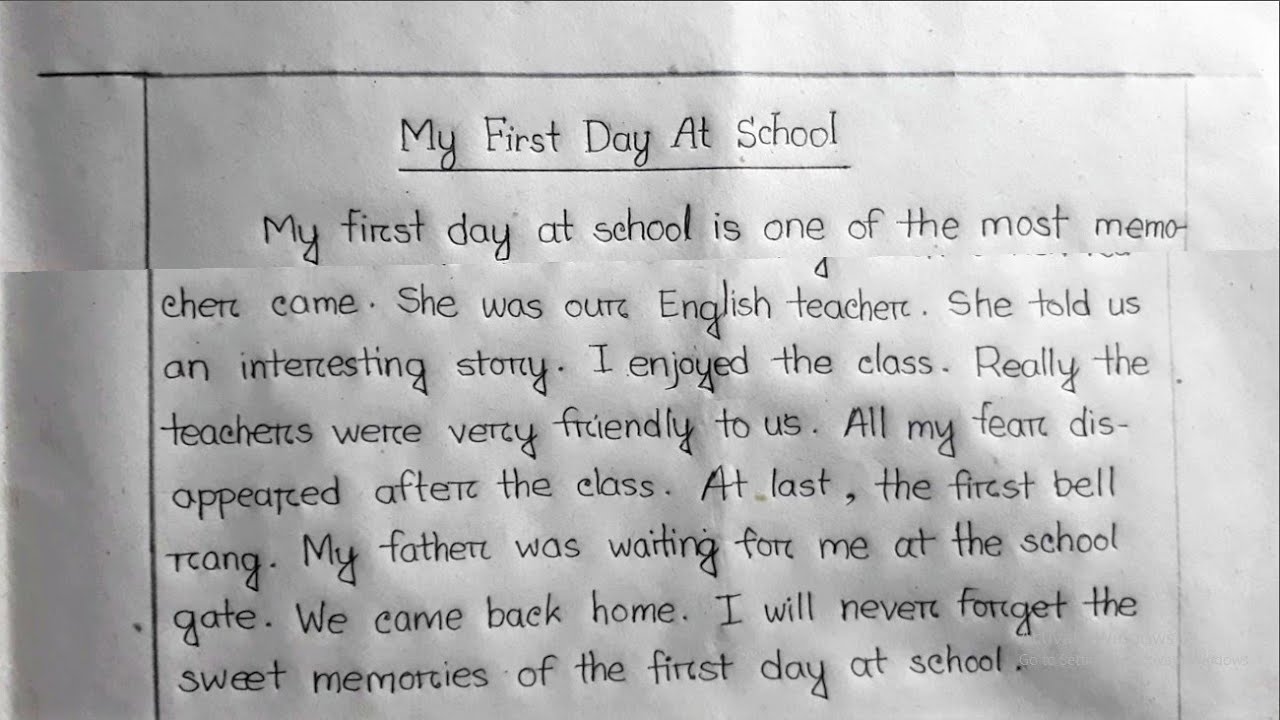 My First Day At School
My first day at school is one of the most memo-
cher came. She was our English teacher. She told us
an interesting story. I enjoyed the class. Really the
teachers were very friendly to us. All my fear dis-
appeared after the class. At last, the first bell
rang. My father was waiting for me at the school
gate. We came back home. I will never forget the
sweet memories of the first day at school.